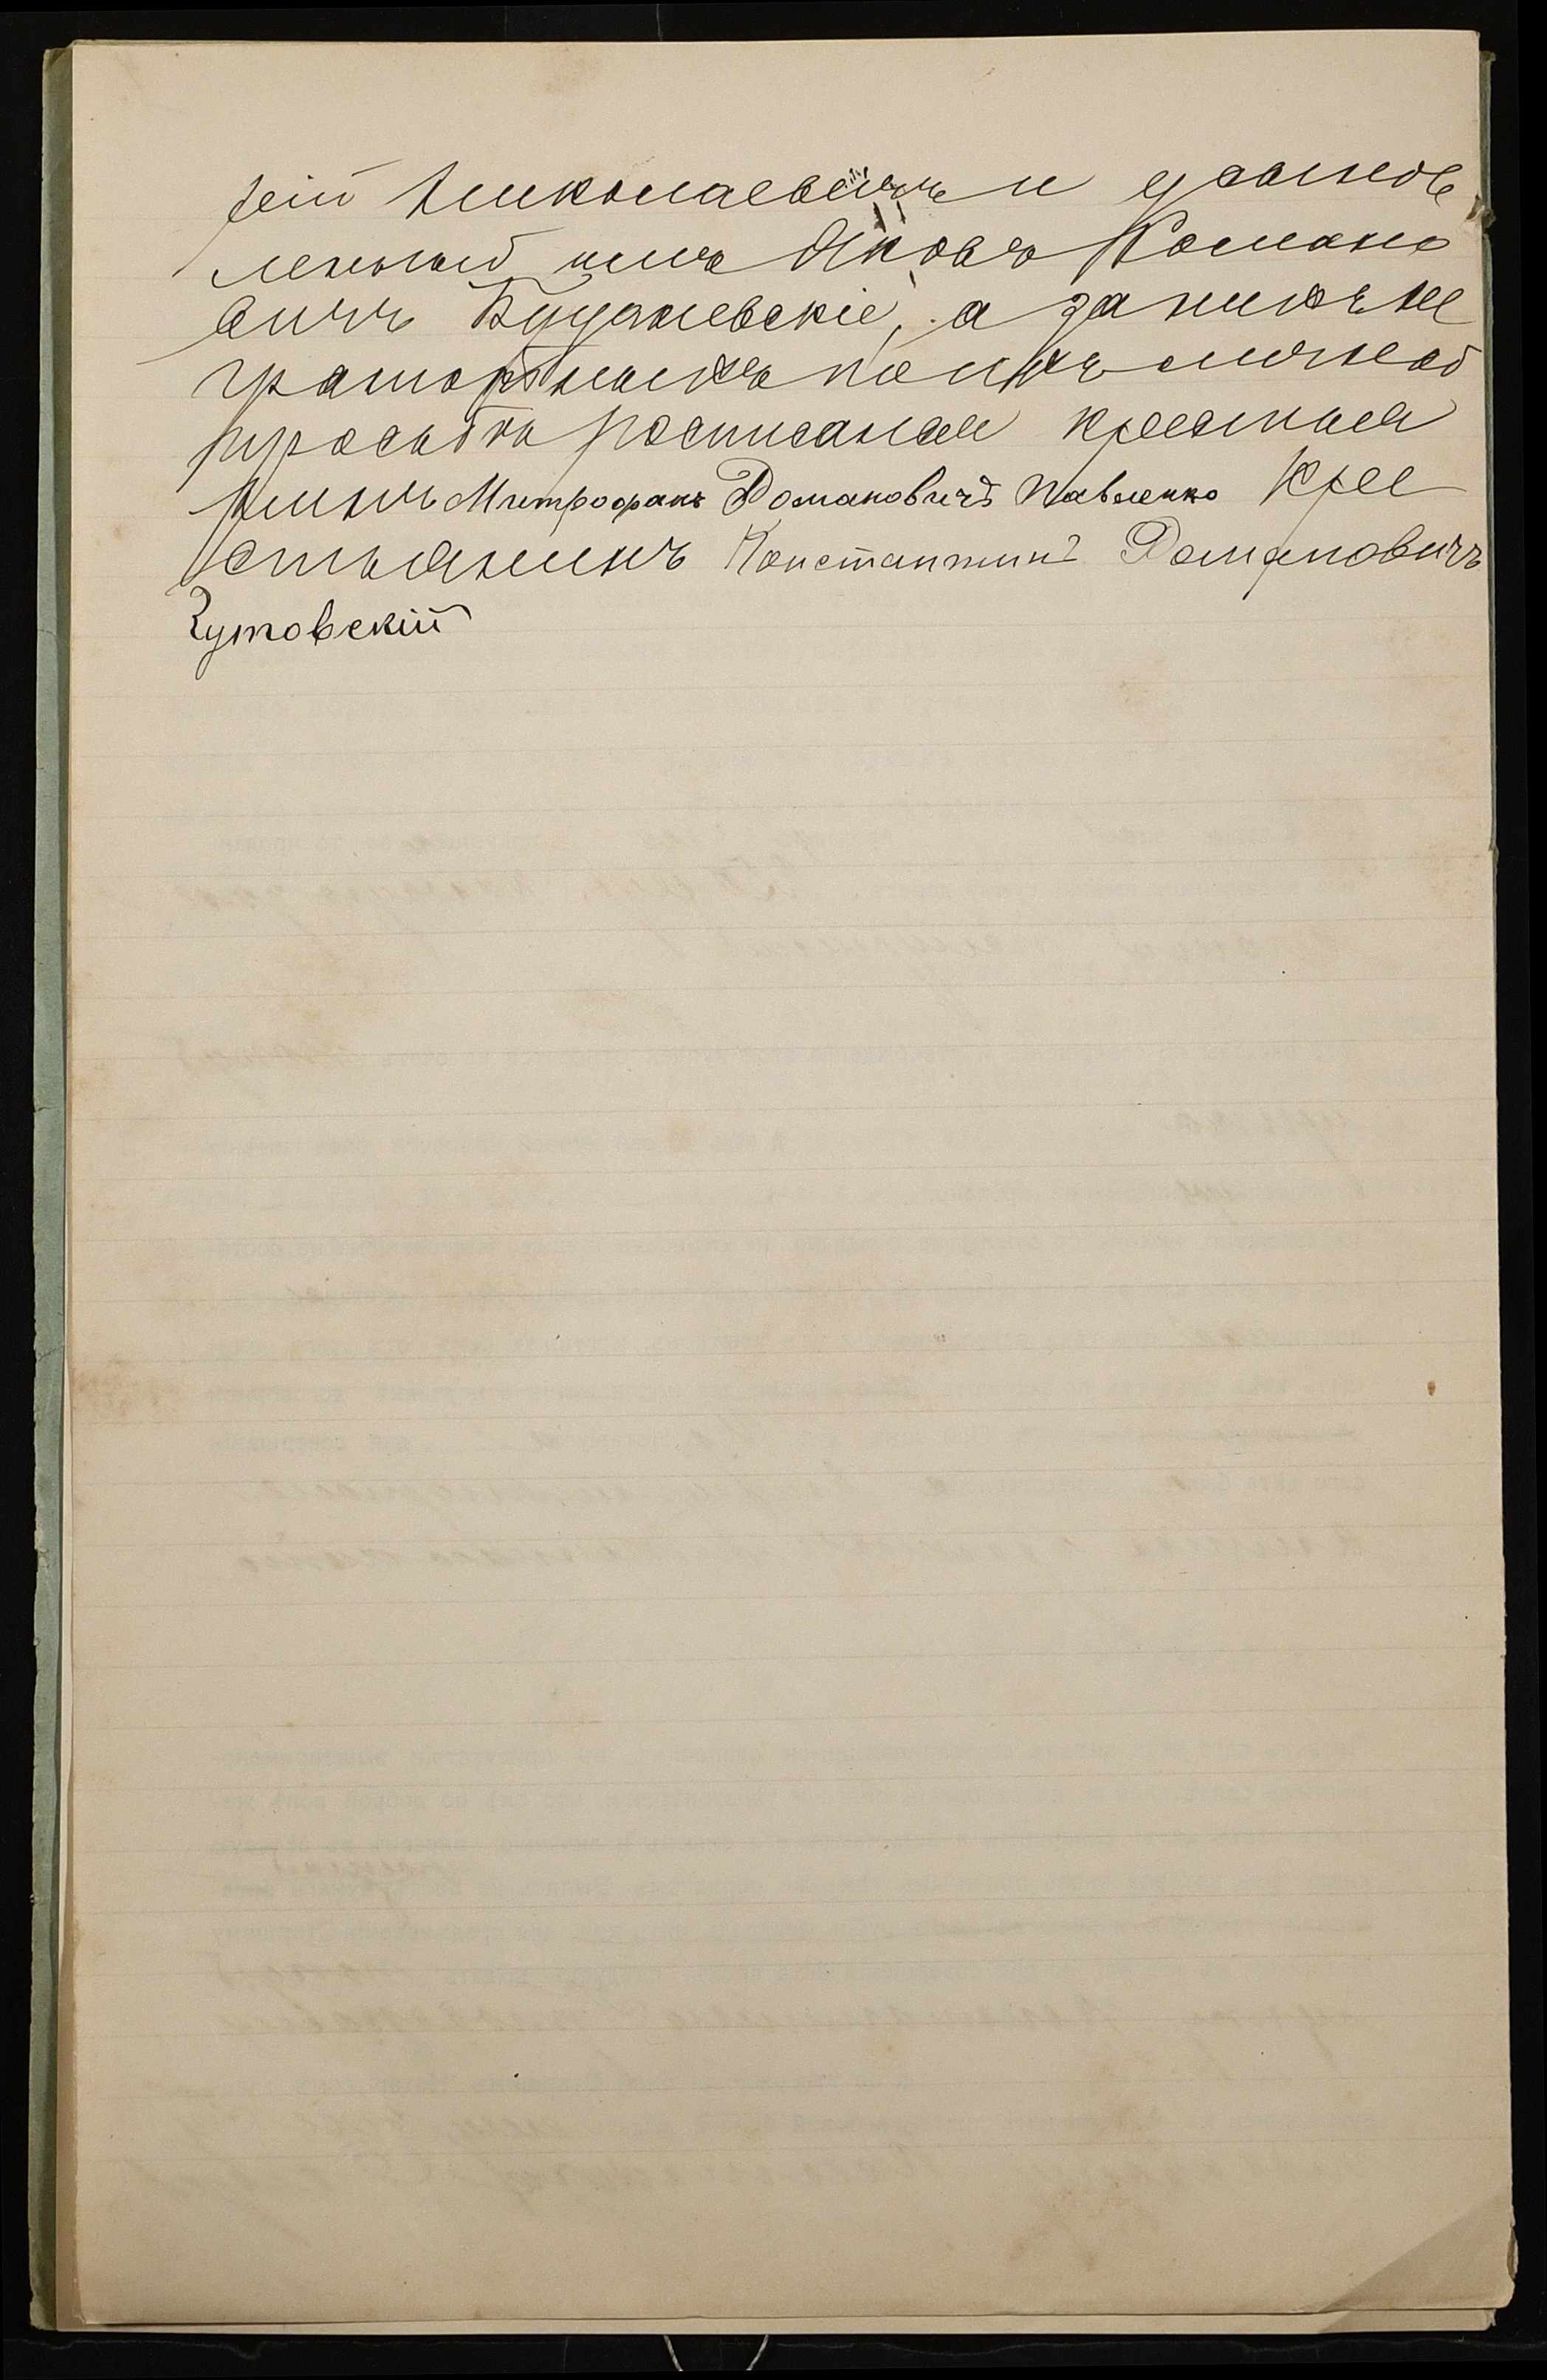 рей Николаевичъ и усынов
ленный имъ Яковъ Романо
вичъ Будзиевскіе, а за нихъ не
грамотныхъ по ихъ личной
просьбѣ росписался крестья
нинъ Митрофанъ Романовичъ Павленко Кре
стьянинъ Константинъ Романовичъ
Чутовскій